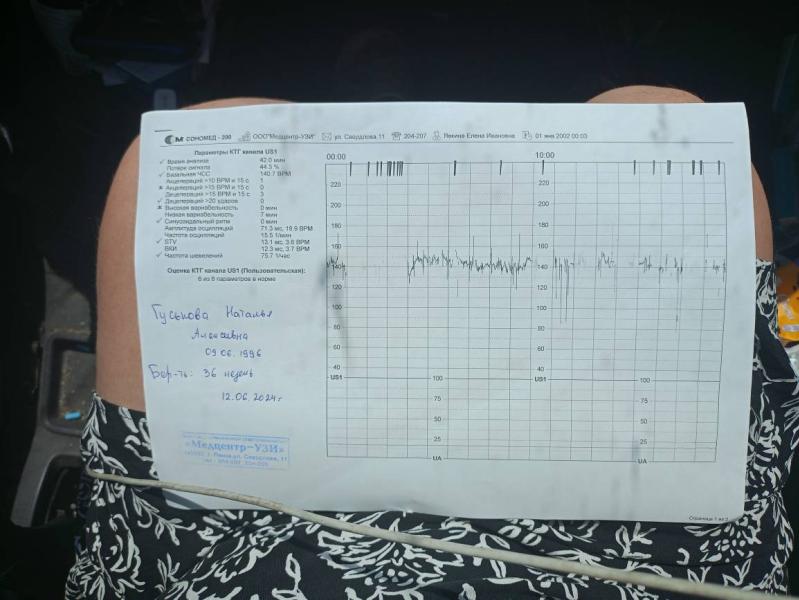 СОНОМЕД - 200 ООО"Медцентр-УЗИ" ул. Свердлова 11 204-207 Янкина Елена Ивановна 01 янв 2002 00:03
Параметры КТГ канала US1
Время анализа 42.0 мин
Потеря сигнала 44.5 %
Базальная ЧСС 140.7 BPM
Акцелераций >10 BPM и 15 с 1
Акцелераций >15 BPM и 15 с 0
Децелераций >15 BPM и 15 с 3
Децелераций >20 ударов 0
Высокая вариабельность 0 мин
Низкая вариабельность 7 мин
Синусоидальный ритм 0 мин
Амплитуда осцилляций 71.3 мс, 19.9 BPM
Частота осцилляций 15.5 1/мин
STV 13.1 мс, 3.8 BPM
ВКИ 12.3 мс, 3.7 BPM
Частота шевелений 75.7 1/час
Оценка КТГ канала US1 (Пользовательская):
6 из 8 параметров в норме
Гуськова Наталья
09.06.1996
Бер-ть: 36 недель
12.06.2024 г
«Медцентр-УЗИ»
00:00 10:00
220 220 220 220
200 200 200 200
180 180 180 180
160 160 160 160
140 140 140 140
120 120 120 120
100 100 100 100
80 80 80 80
60 60 60 60
40 40 40 40
US1 100 US1 100
75 75
50 50
25 25
UA UA
Страница 1 из 2